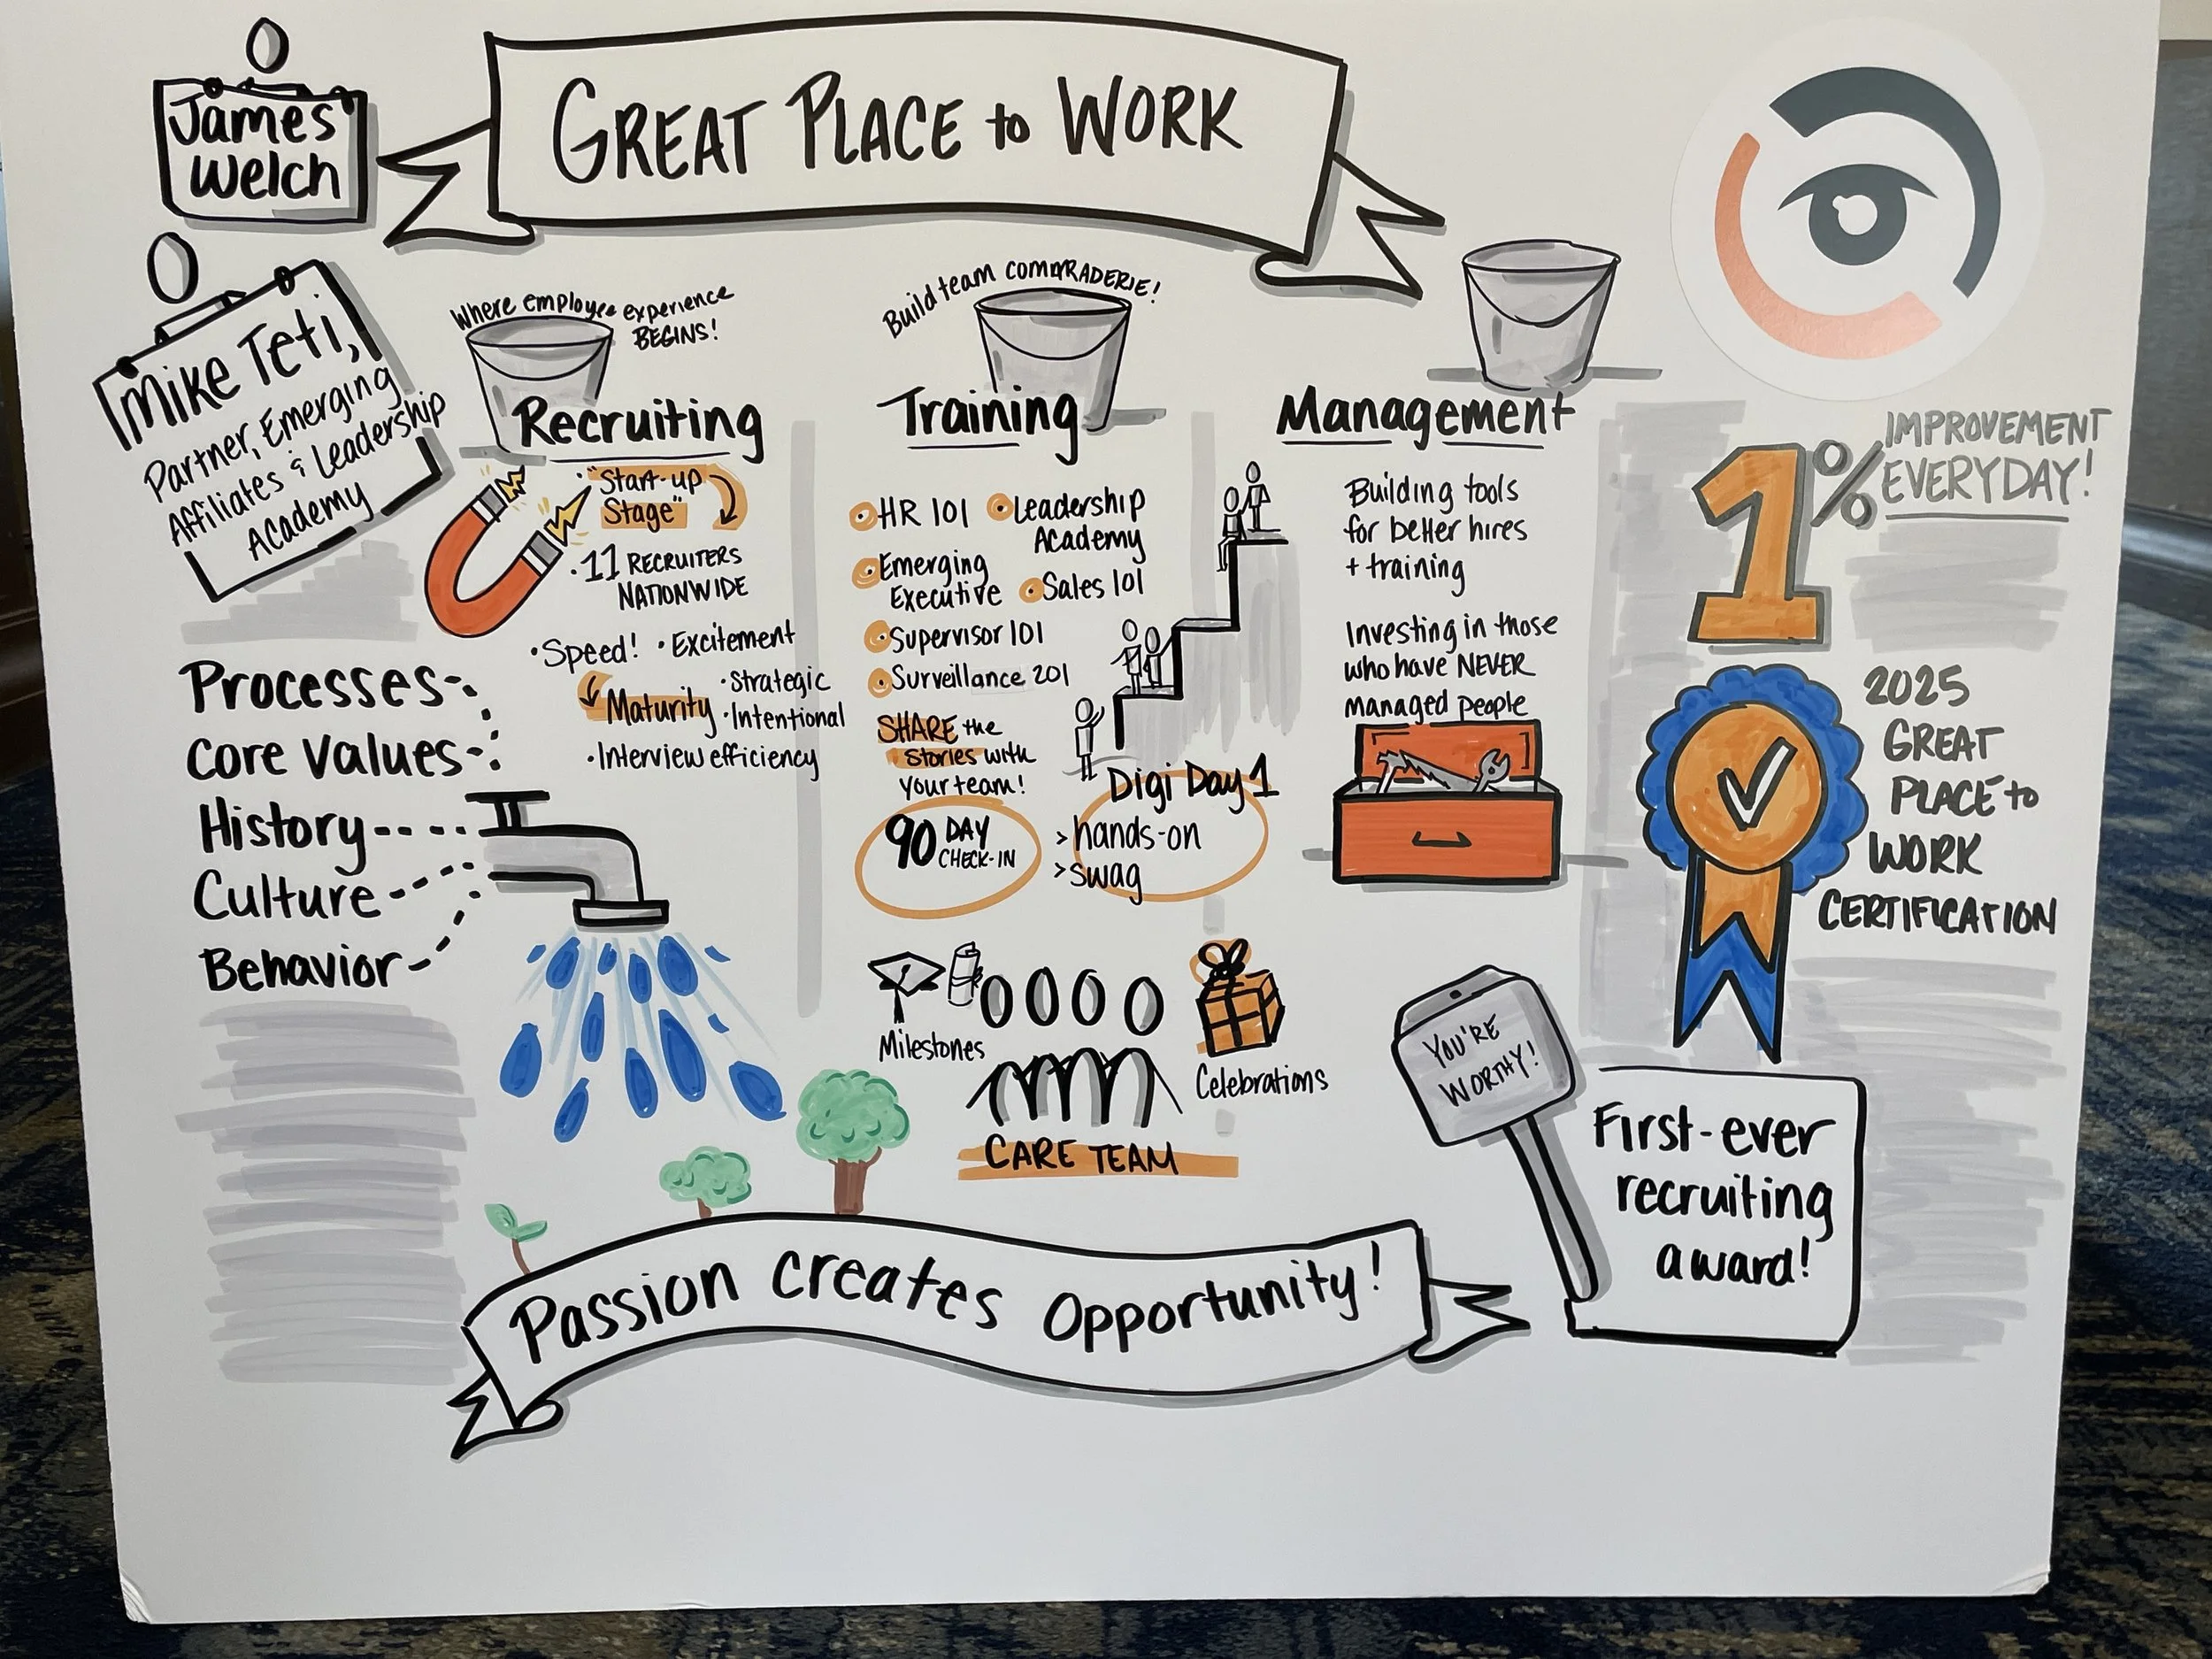 James
Welch
GREAT PLACE to WORK
Mike Teti,
Partner, Emerging
Affiliates & Leadership
Academy
Where employee experience
BEGINS!
Recruiting
"Start-up
Stage"
·11 RECRUITERS
NATIONWIDE
·Speed! ·Excitement
Maturity ·Strategic
·Intentional
·Interview efficiency
Build team COMMRADERIE!
Training
HR 101
Leadership
Academy
Emerging
Executive
Sales 101
Supervisor 101
Surveillance 201
SHARE the
stories with
your team!
90 DAY
CHECK-IN
Digi Day 1
> hands-on
> swag
Milestones
Celebrations
CARE TEAM
Management
Building tools
for better hires
+ training
Investing in those
who have NEVER
managed people
1% IMPROVEMENT
EVERYDAY!
2025
GREAT
PLACE to
WORK
CERTIFICATION
Processes
Core Values
History
Culture
Behavior
YOU'RE
WORTHY!
First-ever
recruiting
award!
Passion creates opportunity!